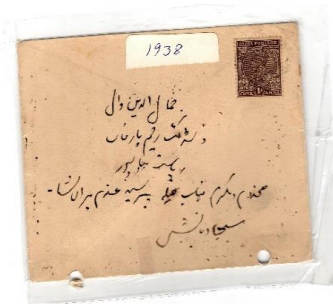 1938
جمال الدین والی
ڈسٹرکٹ رحیم یار خان
ریاست بہاولپور
مخدوم مکرم جناب پیر سید غلام میراں شاہ
سجادہ نشین